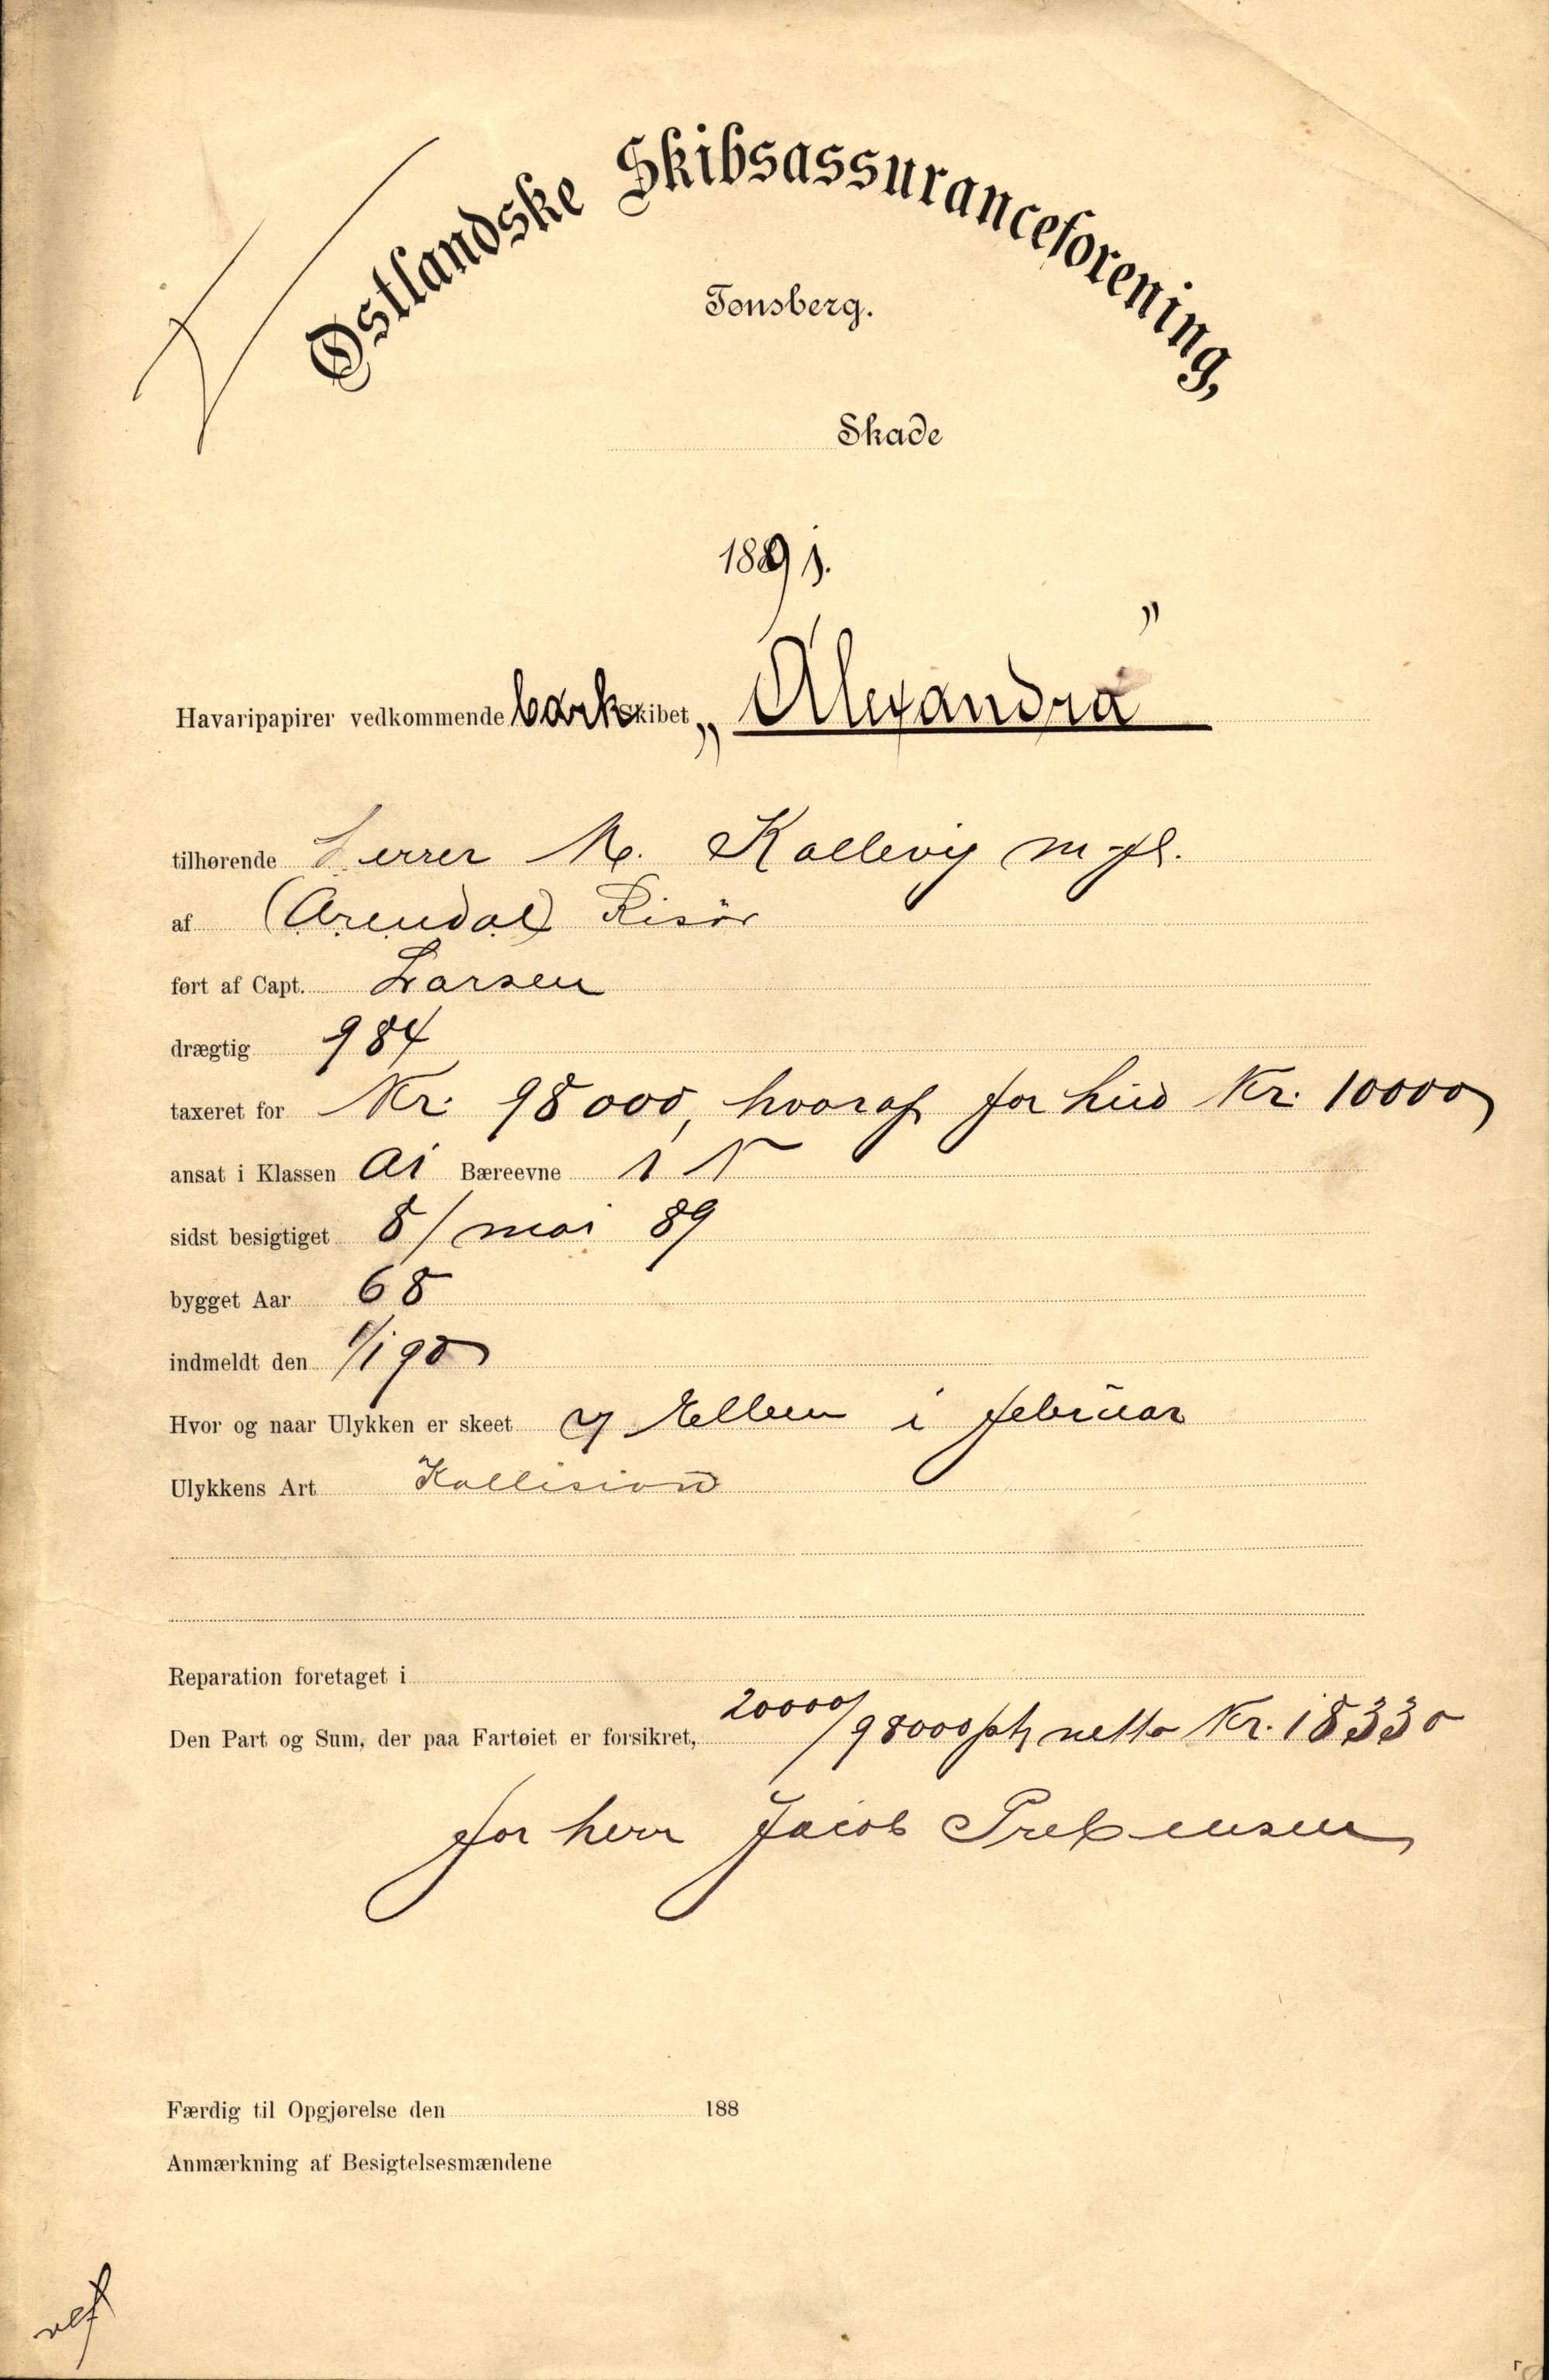 Østlandske Skibsassuranceforening,
Tønsberg.
Skade
1891.
Havaripapirer vedkommende barkskibet „Alexandra"
tilhørende Herrer M. Kallevig m fl.
af (Arendal) Risör
ført af Capt. Larsen
drægtig 984
taxeret for Kr. 98000, hvoraf for hud Kr. 10000
ansat i Klassen A1 Bæreevne 1 1
sidst besigtiget 8/ mai 89
bygget Aar 68
indmeldt den 1/1 90
Hvor og naar Ulykken er skeet i februar
Ulykkens Art Kollision
Reparation foretaget i
Den Part og Sum, der paa Fartøiet er forsikret, 20000/98000 pt netto Kr. 18330
for herr Jacob Prebensen
Færdig til Opgjørelse den 188
Anmærkning af Besigtelsesmændene